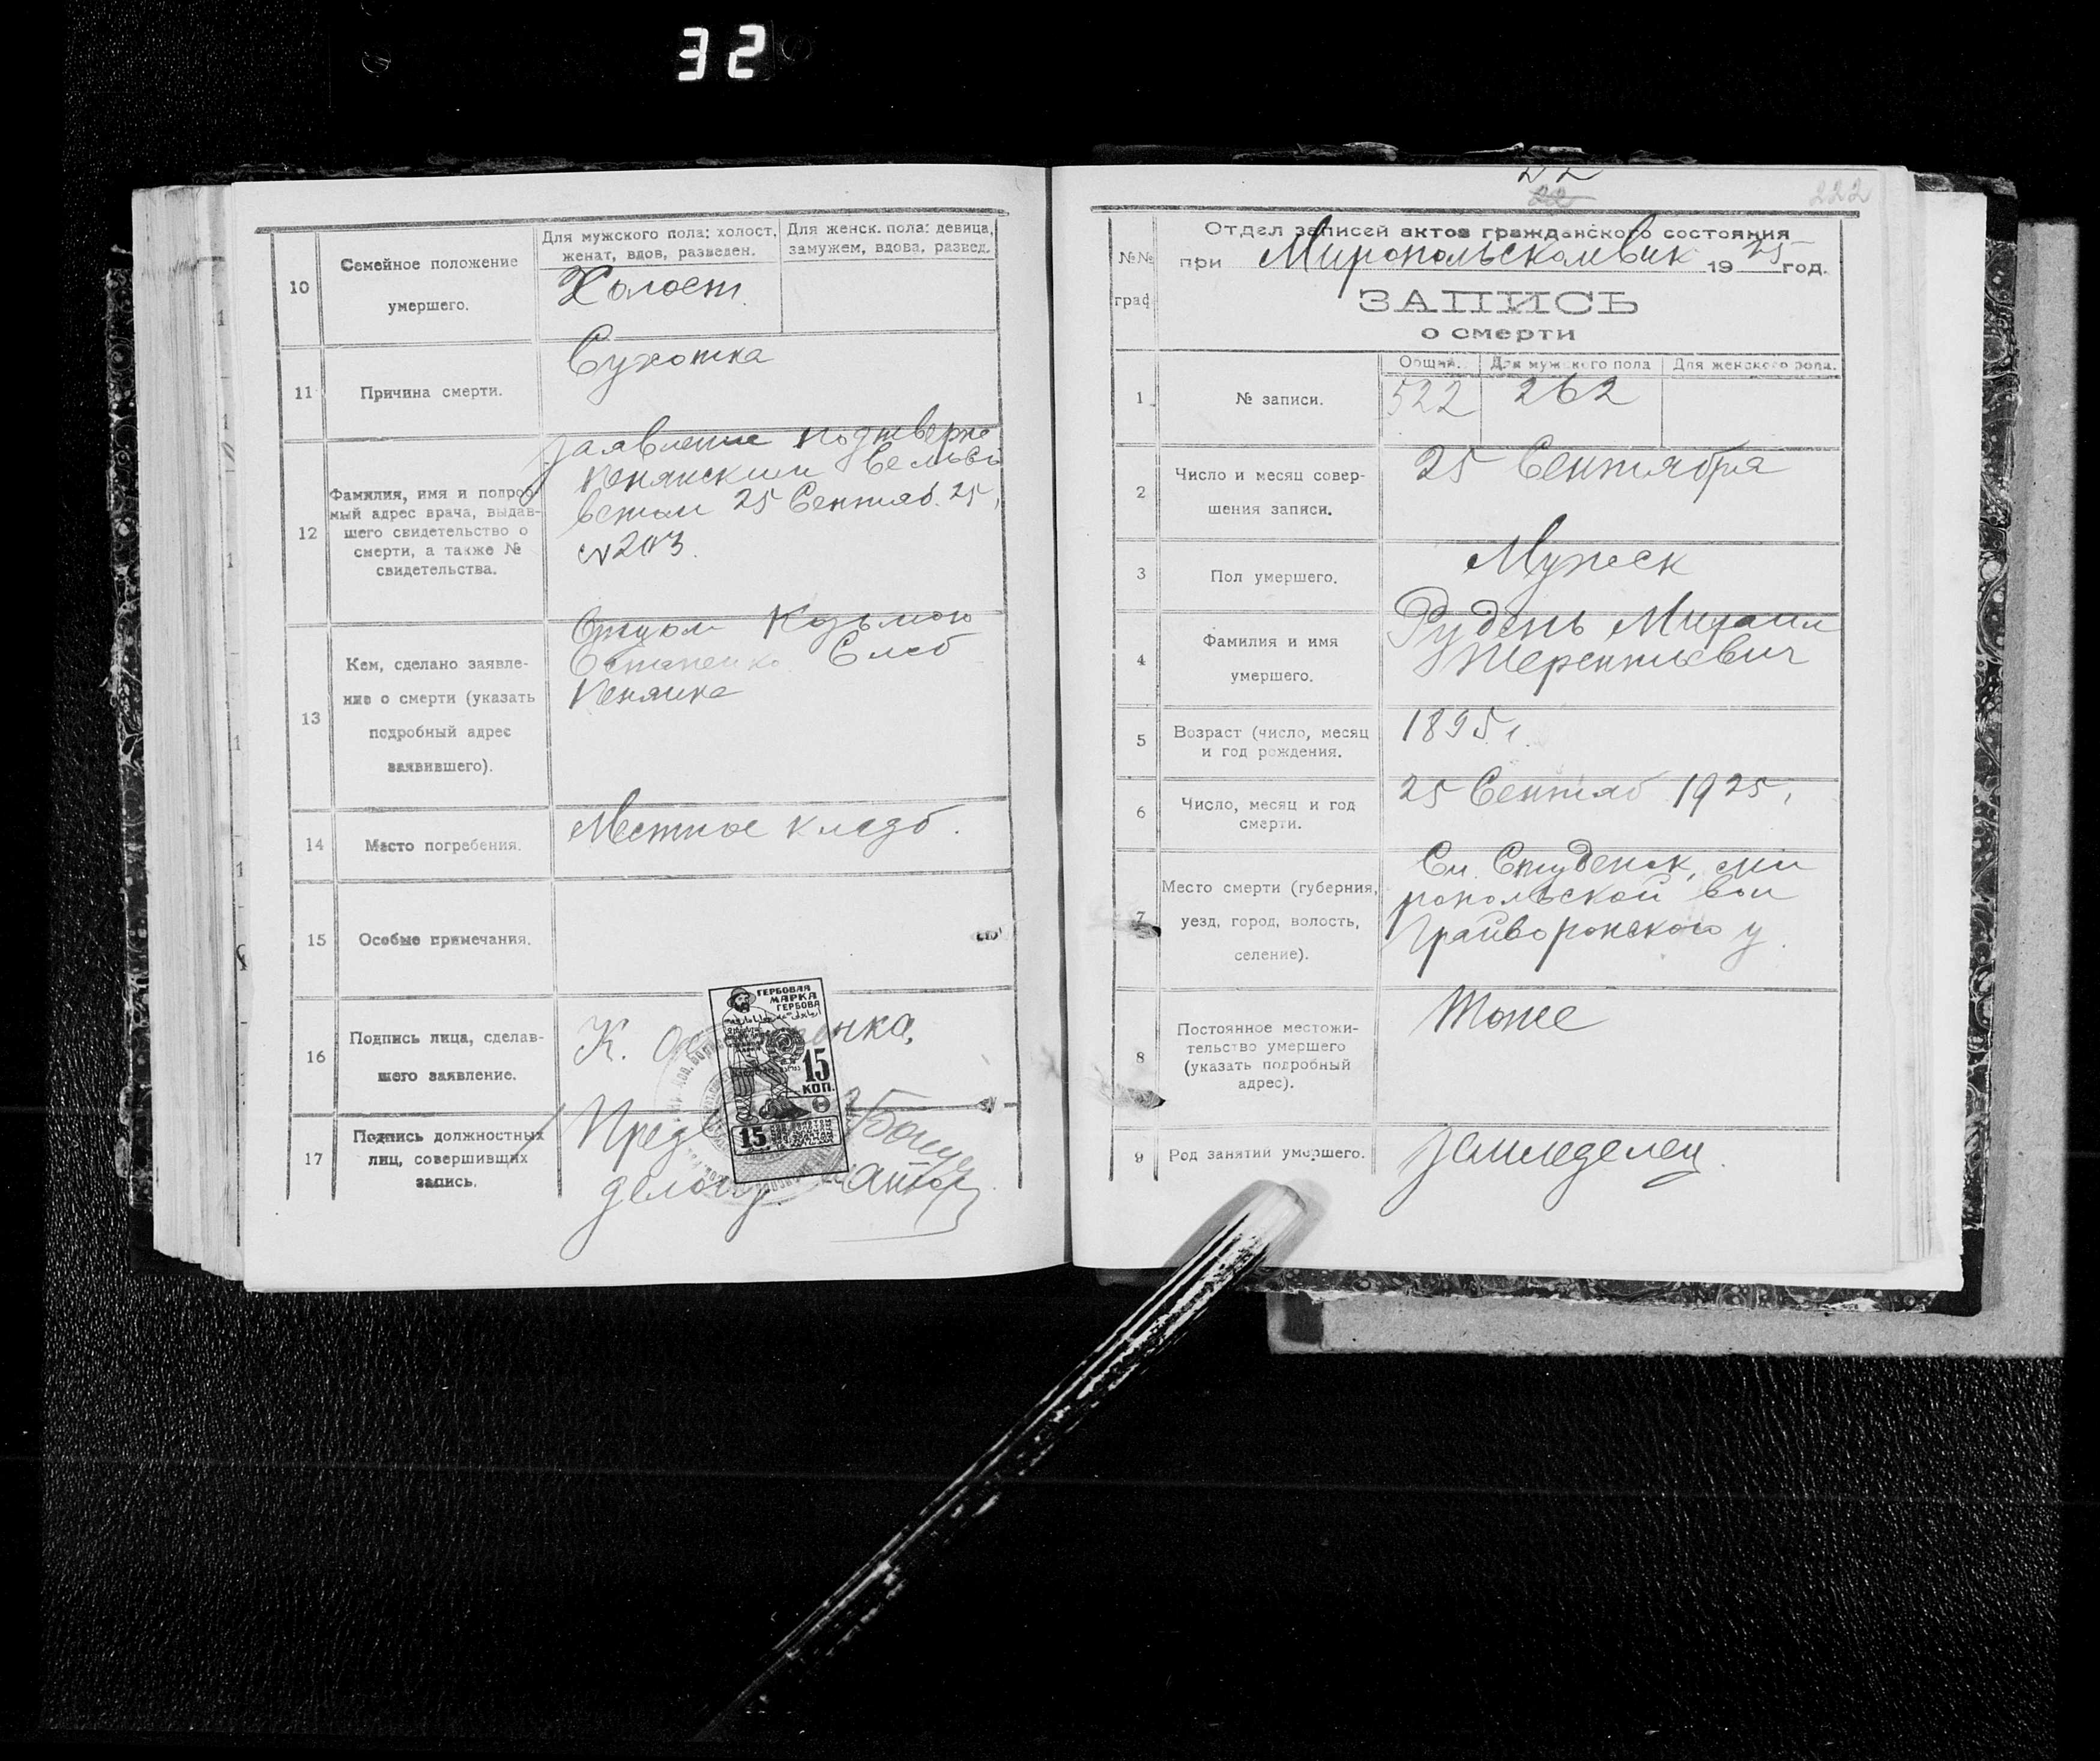 32
10
Семейное положение
умершего.
Для мужского пола: холост,
женат, вдов, разведен.
Для женск. пола: девица,
замужем, вдова, развед.
Холост.
11
Причина смерти.
Сухотка
12
Фамилия, имя и подроб-
мый адрес врача, выдав-
шего свидетельство о
смерти, а также №
свидетельства.
Заявление подтверже
Пенянским Сельсо
ветом 25 Сентяб. 25,
№203.
13
Кем, сделано заявле-
ние о смерти (указать
подробный адрес
заявившего).
Отцом Козьмою
Остапенко Слоб
Пенянка
14
Место погребения.
Местное кладб.
15
Особые примечания.
16
Подпись лица, сделав-
шего заявление.
К.
17
Подпись должностных
лиц, совершивщих
запись.
Пред
делопр.
ГЕРБОВАЯ
МАРКА
ГЕРБОВА
15
КОП.
15
22
22
222
№№
граф
Отдел записей актов гражданского состояния
при Миропольском вик 1925 год.
ЗАПИСЬ
о смерти
1
№ записи.
Общий.
Для мужского пола
Для женского пола.
522
262
2
Число и месяц совер-
шения записи.
25 Сентября
3
Пол умершего.
Мужеск
4
Фамилия и имя
умершего.
Рудень Михаил
Терентиевич
5
Возраст (число, месяц
и год рождения.
1895 г.
6
Число, месяц и год
смерти.
25 Сентяб 1925,
7
Место смерти (губерния,
уезд, город, волость,
селение).
Сл. Студенок, Ми
ропольской вол
Грайворонского у.
8
Постоянное местожи-
тельство умершего
(указать подробный
адрес).
Тоже
9
Род занятий умершего.
Земледелец.